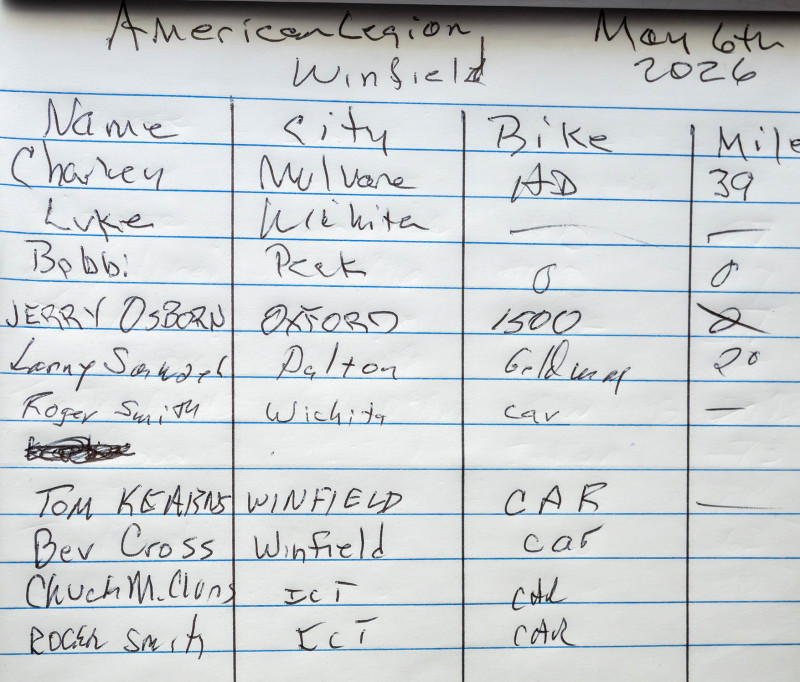 American Legion, May 6th
Winfield 2026
Name City Bike Mile
Charley Mulvane HD 39
Luke Wichita — —
Bobbi Peck 0 0
JERRY OSBORN OXFORD 1500
Larry Dalton Goldwing 20
Roger Smith Wichita car —
TOM KEARNS WINFIELD CAR —
Bev Cross Winfield car
Chuck ICT CAR
ROGER Smith ICT CAR